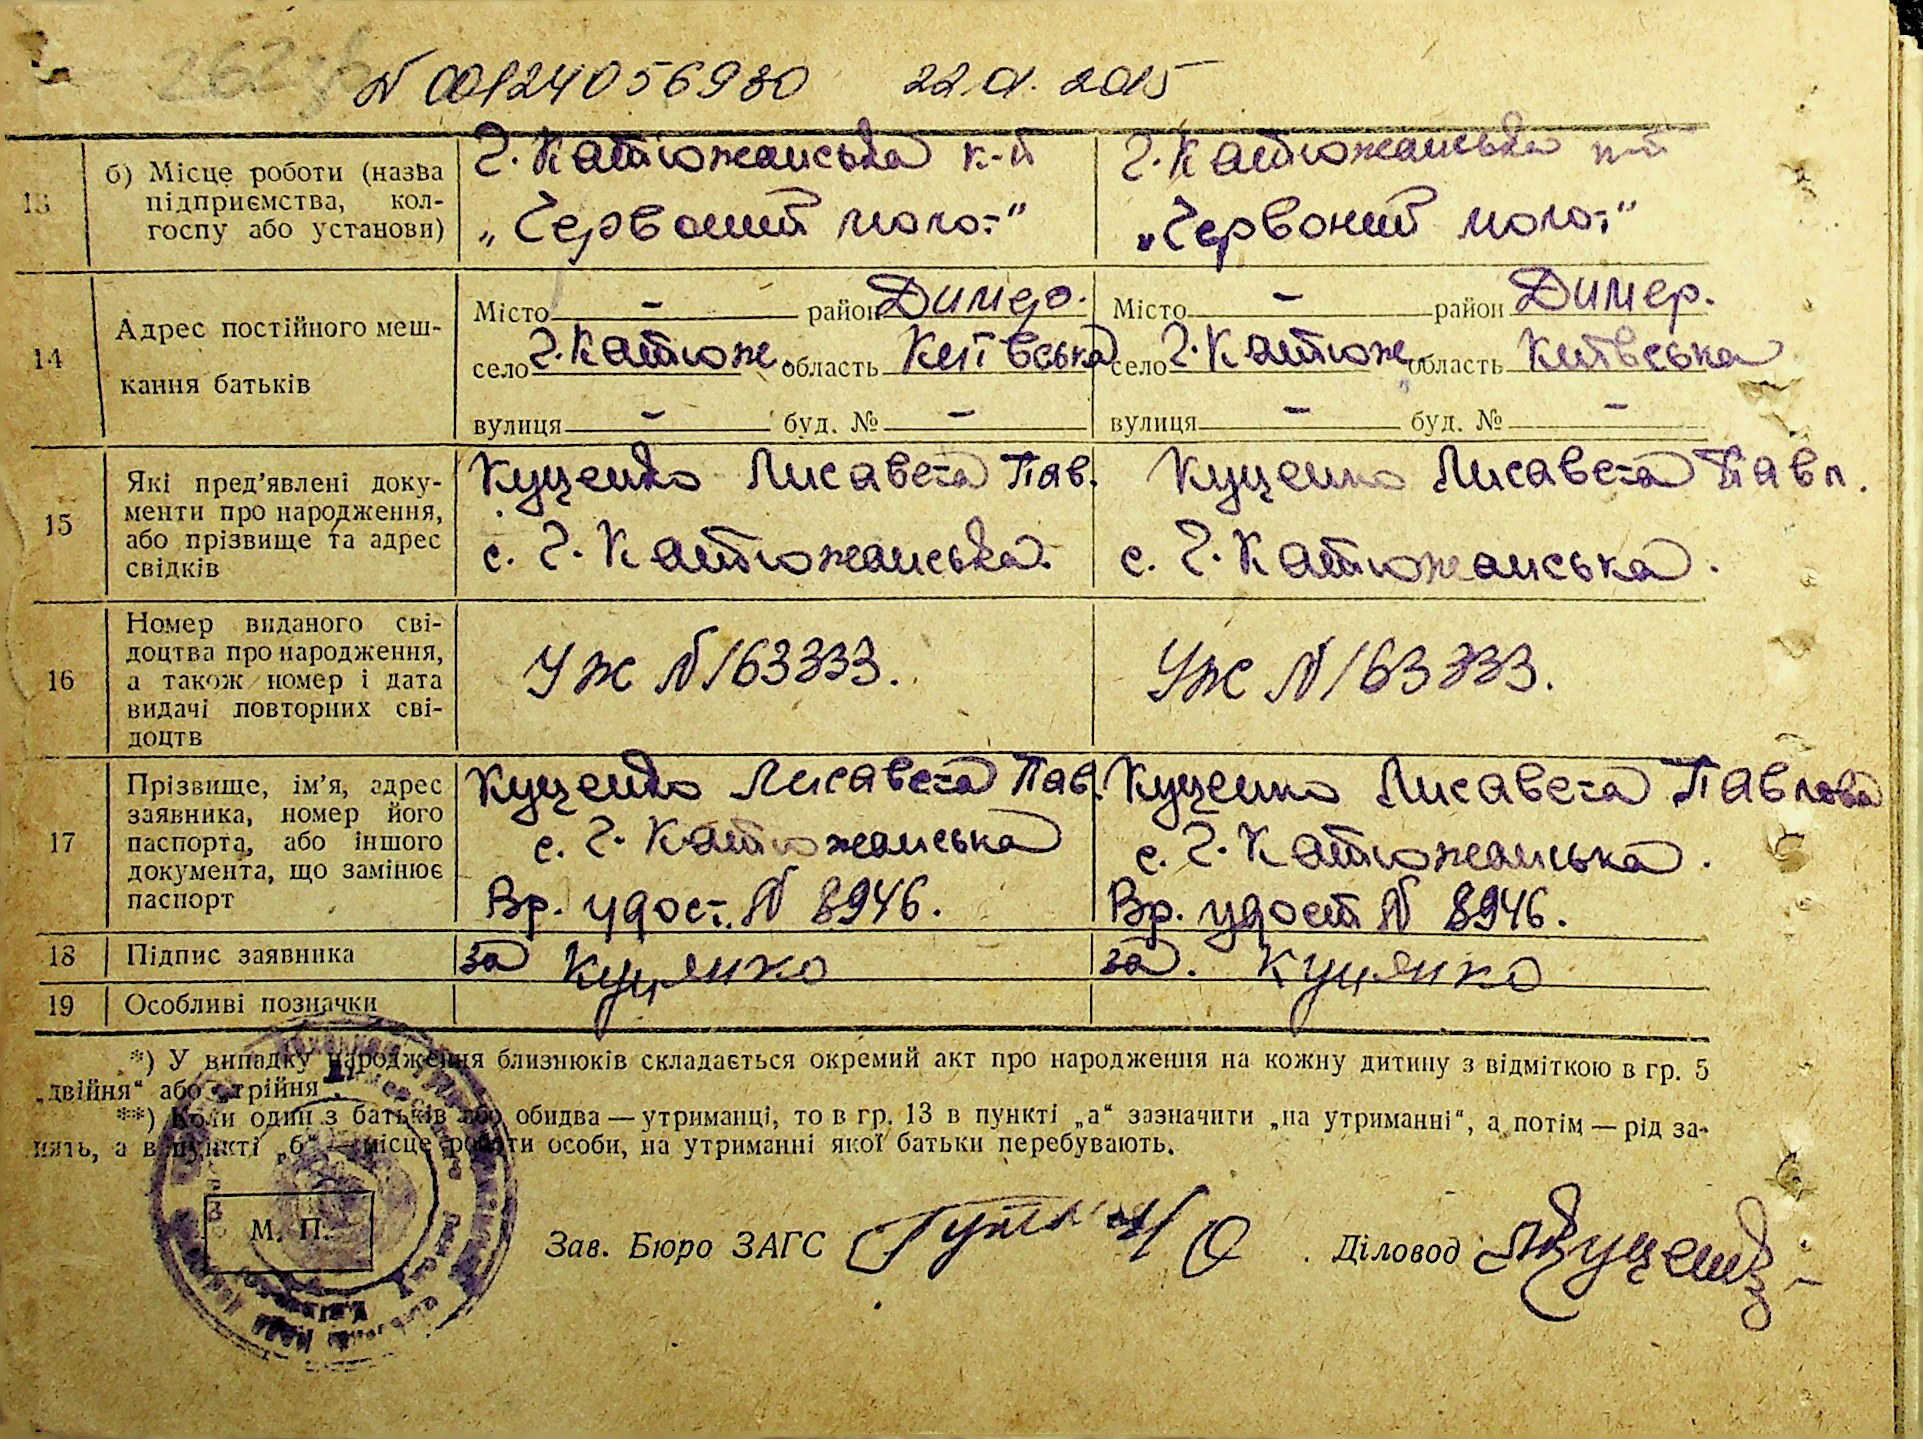 N 00124056980 22.01.2015
13 б) Місце роботи (назва підприємства, колгоспу або установи)
Г. Катюжанська к-п Г. Катюжанська к-п
„Червоний молот" „Червоний молот"
14 Адрес постійного мешкання батьків
Місто — район Димер. Місто — район Димер.
село Г. Катюж. область Київська село Г. Катюж. область Київська
вулиця — буд. № — вулиця — буд. № —
15 Які пред’явлені документи про народження, або прізвище та адрес свідків
Куценко Лисавета Пав. Куценко Лисавета Павл.
с. Г. Катюжанська. с. Г. Катюжанська.
16 Номер виданого свідоцтва про народження, а також номер і дата видачі повторних свідоцтв
УЖ N 163333. УЖ N 163333.
17 Прізвище, ім’я, адрес заявника, номер його паспорта, або іншого документа, що замінює паспорт
Куценко Лисавета Пав. Куценко Лисавета Павлова
с. Г. Катюжанська с. Г. Катюжанська.
Вр. удост. N 8946. Вр. удост N 8946.
18 Підпис заявника за Куценко за. Куценко
19 Особливі позначки
*) У випадку народження близнюків складається окремий акт про народження на кожну дитину з відміткою в гр. 5
„двійня“ або „трійня“.
**) Коли один з батьків або обидва — утриманці, то в гр. 13 в пункті „а“ зазначити „на утриманні“, а потім — рід за-
нять, а в пункті „б“ — місце роботи особи, на утриманні якої батьки перебувають.
М. П.
Зав. Бюро ЗАГС Діловод